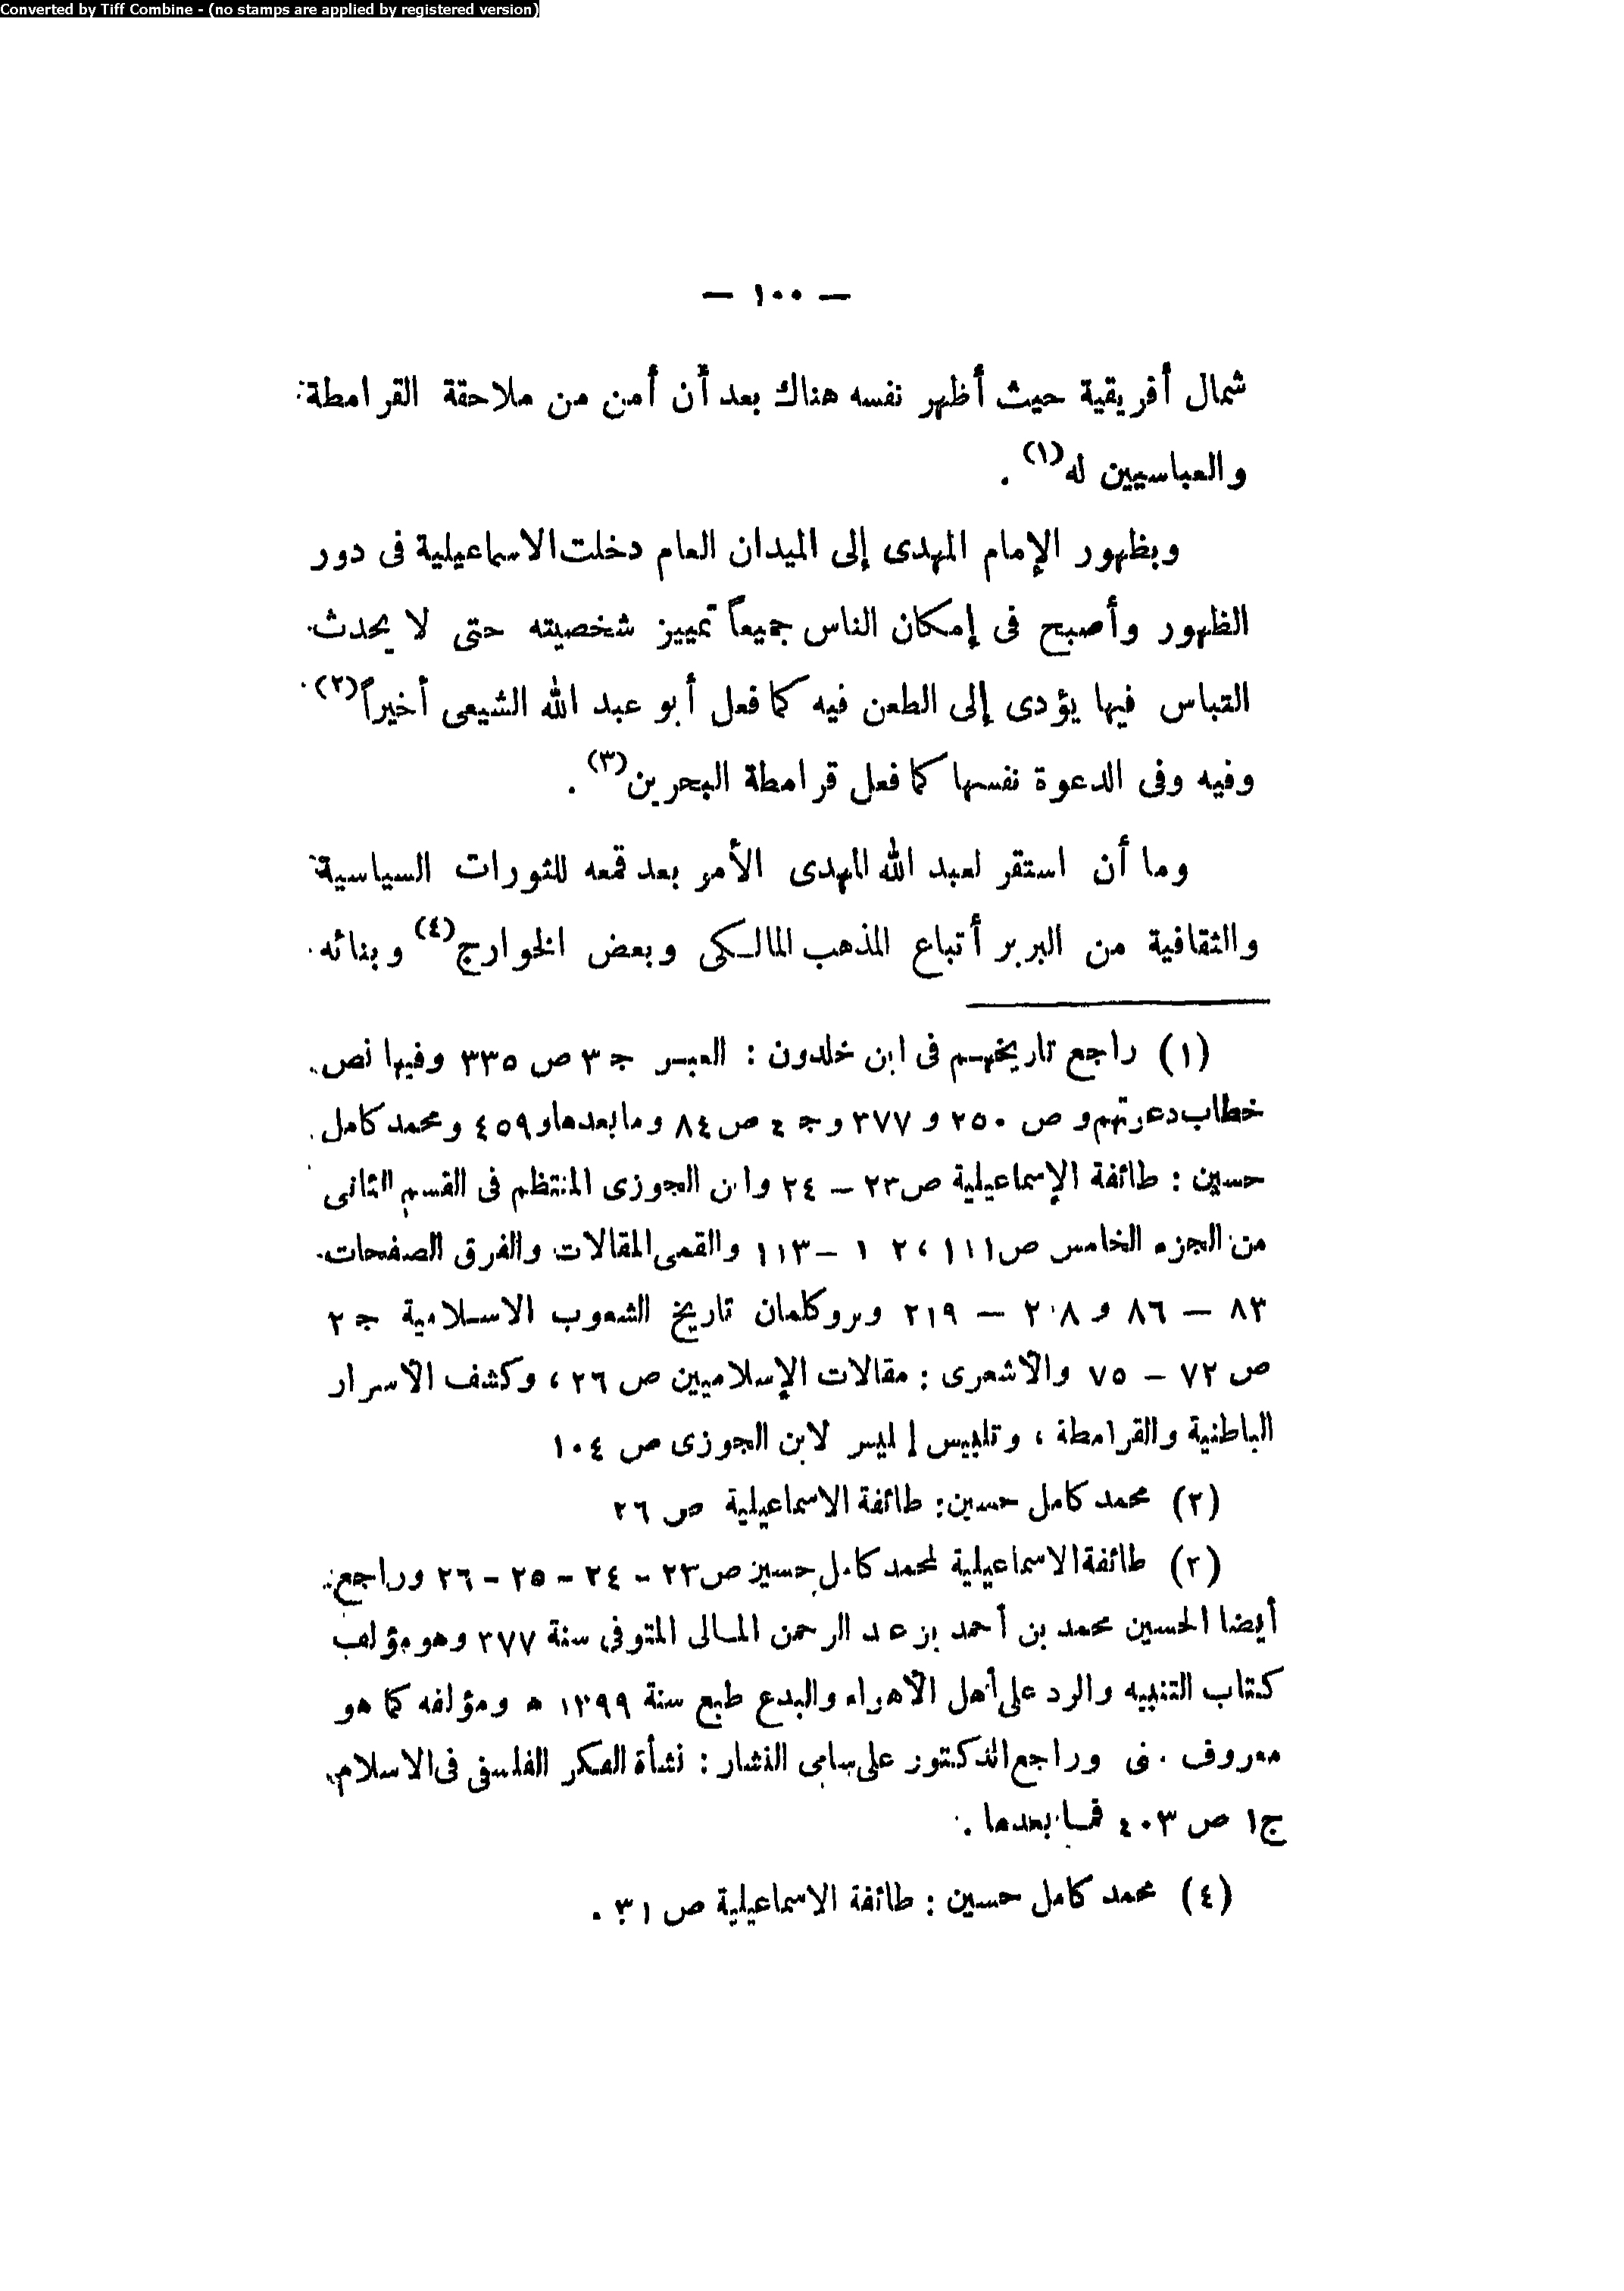 Converted by Tiff Combine - (no stamps are applied by registered version)
— ١٠٠ —
شمال أفريقية حيث أظهر نفسه هناك بعد أن أمن من ملاحقة القرامطة
والعباسيين له(١) .
وبظهور الإمام المهدى إلى الميدان العام دخلت الاسماعيلية فى دور
الظهور وأصبح فى إمكان الناس جميعاً تمييز شخصيته حتى لا يحدث
التباس فيها يؤدى إلى الطعن فيه كما فعل أبو عبد الله الشيعى أخيراً(٢)
وفيه وفى الدعوة نفسها كما فعل قرامطة البحرين(٣) .
وما أن استقر لعبد الله المهدى الأمر بعد قمعه للثورات السياسية
والثقافية من البربر أتباع المذهب المالكى وبعض الخوارج(٤) وبنائه
(١) راجع تاريخهم فى ابن خلدون : العبر ج ٣ ص ٣٣٥ وفيها نص
خطاب دعوتهم و ص ٢٥٠ و ٣٧٧ و ج ٤ ص ٨٤ وما بعدها و ٤٥٩ ومحمد كامل
حسين : طائفة الإسماعيلية ص ٢٣ – ٢٤ وابن الجوزى المنتظم فى القسم الثانى
من الجزء الخامس ص ١١١ ، ١ ٢ – ١١٣ والقمى المقالات والفرق الصفحات
٨٣ – ٨٦ و ٢٠٨ – ٢١٩ وبروكلمان تاريخ الشعوب الاسلامية ج ٢
ص ٧٢ – ٧٥ والأشعرى : مقالات الإسلاميين ص ٢٦ ، وكشف الأسرار
الباطنية والقرامطة ، وتلبيس إبليس لابن الجوزى ص ١٠٤
(٢) محمد كامل حسين : طائفة الاسماعيلية ص ٢٦
(٣) طائفة الاسماعيلية لمحمد كامل حسين ص ٢٣ – ٢٤ – ٢٥ – ٢٦ وراجع
أيضا الحسين محمد بن أحمد بن عبد الرحمن المتوفى سنة ٣٧٧ وهو مؤلف
كتاب التنبيه والرد على أهل الأهواء والبدع طبع سنة ١٣٩٩ ه ومؤلفه كما هو
معروف وراجع الدكتور على سامى النشار : نشأة الفكر الفلسفى فى الاسلام
ج١ ص ٤٠٣ فما بعدها .
(٤) محمد كامل حسين : طائفة الاسماعيلية ص ٣١ .